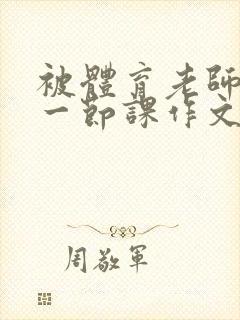 被體育老師
一節課作文
周敬軍